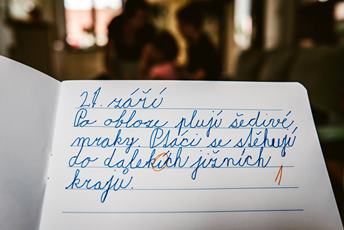 21. září
Po obloze plují šedivé
mraky. Ptáci se stěhují
do dalekých jižních
krajů.